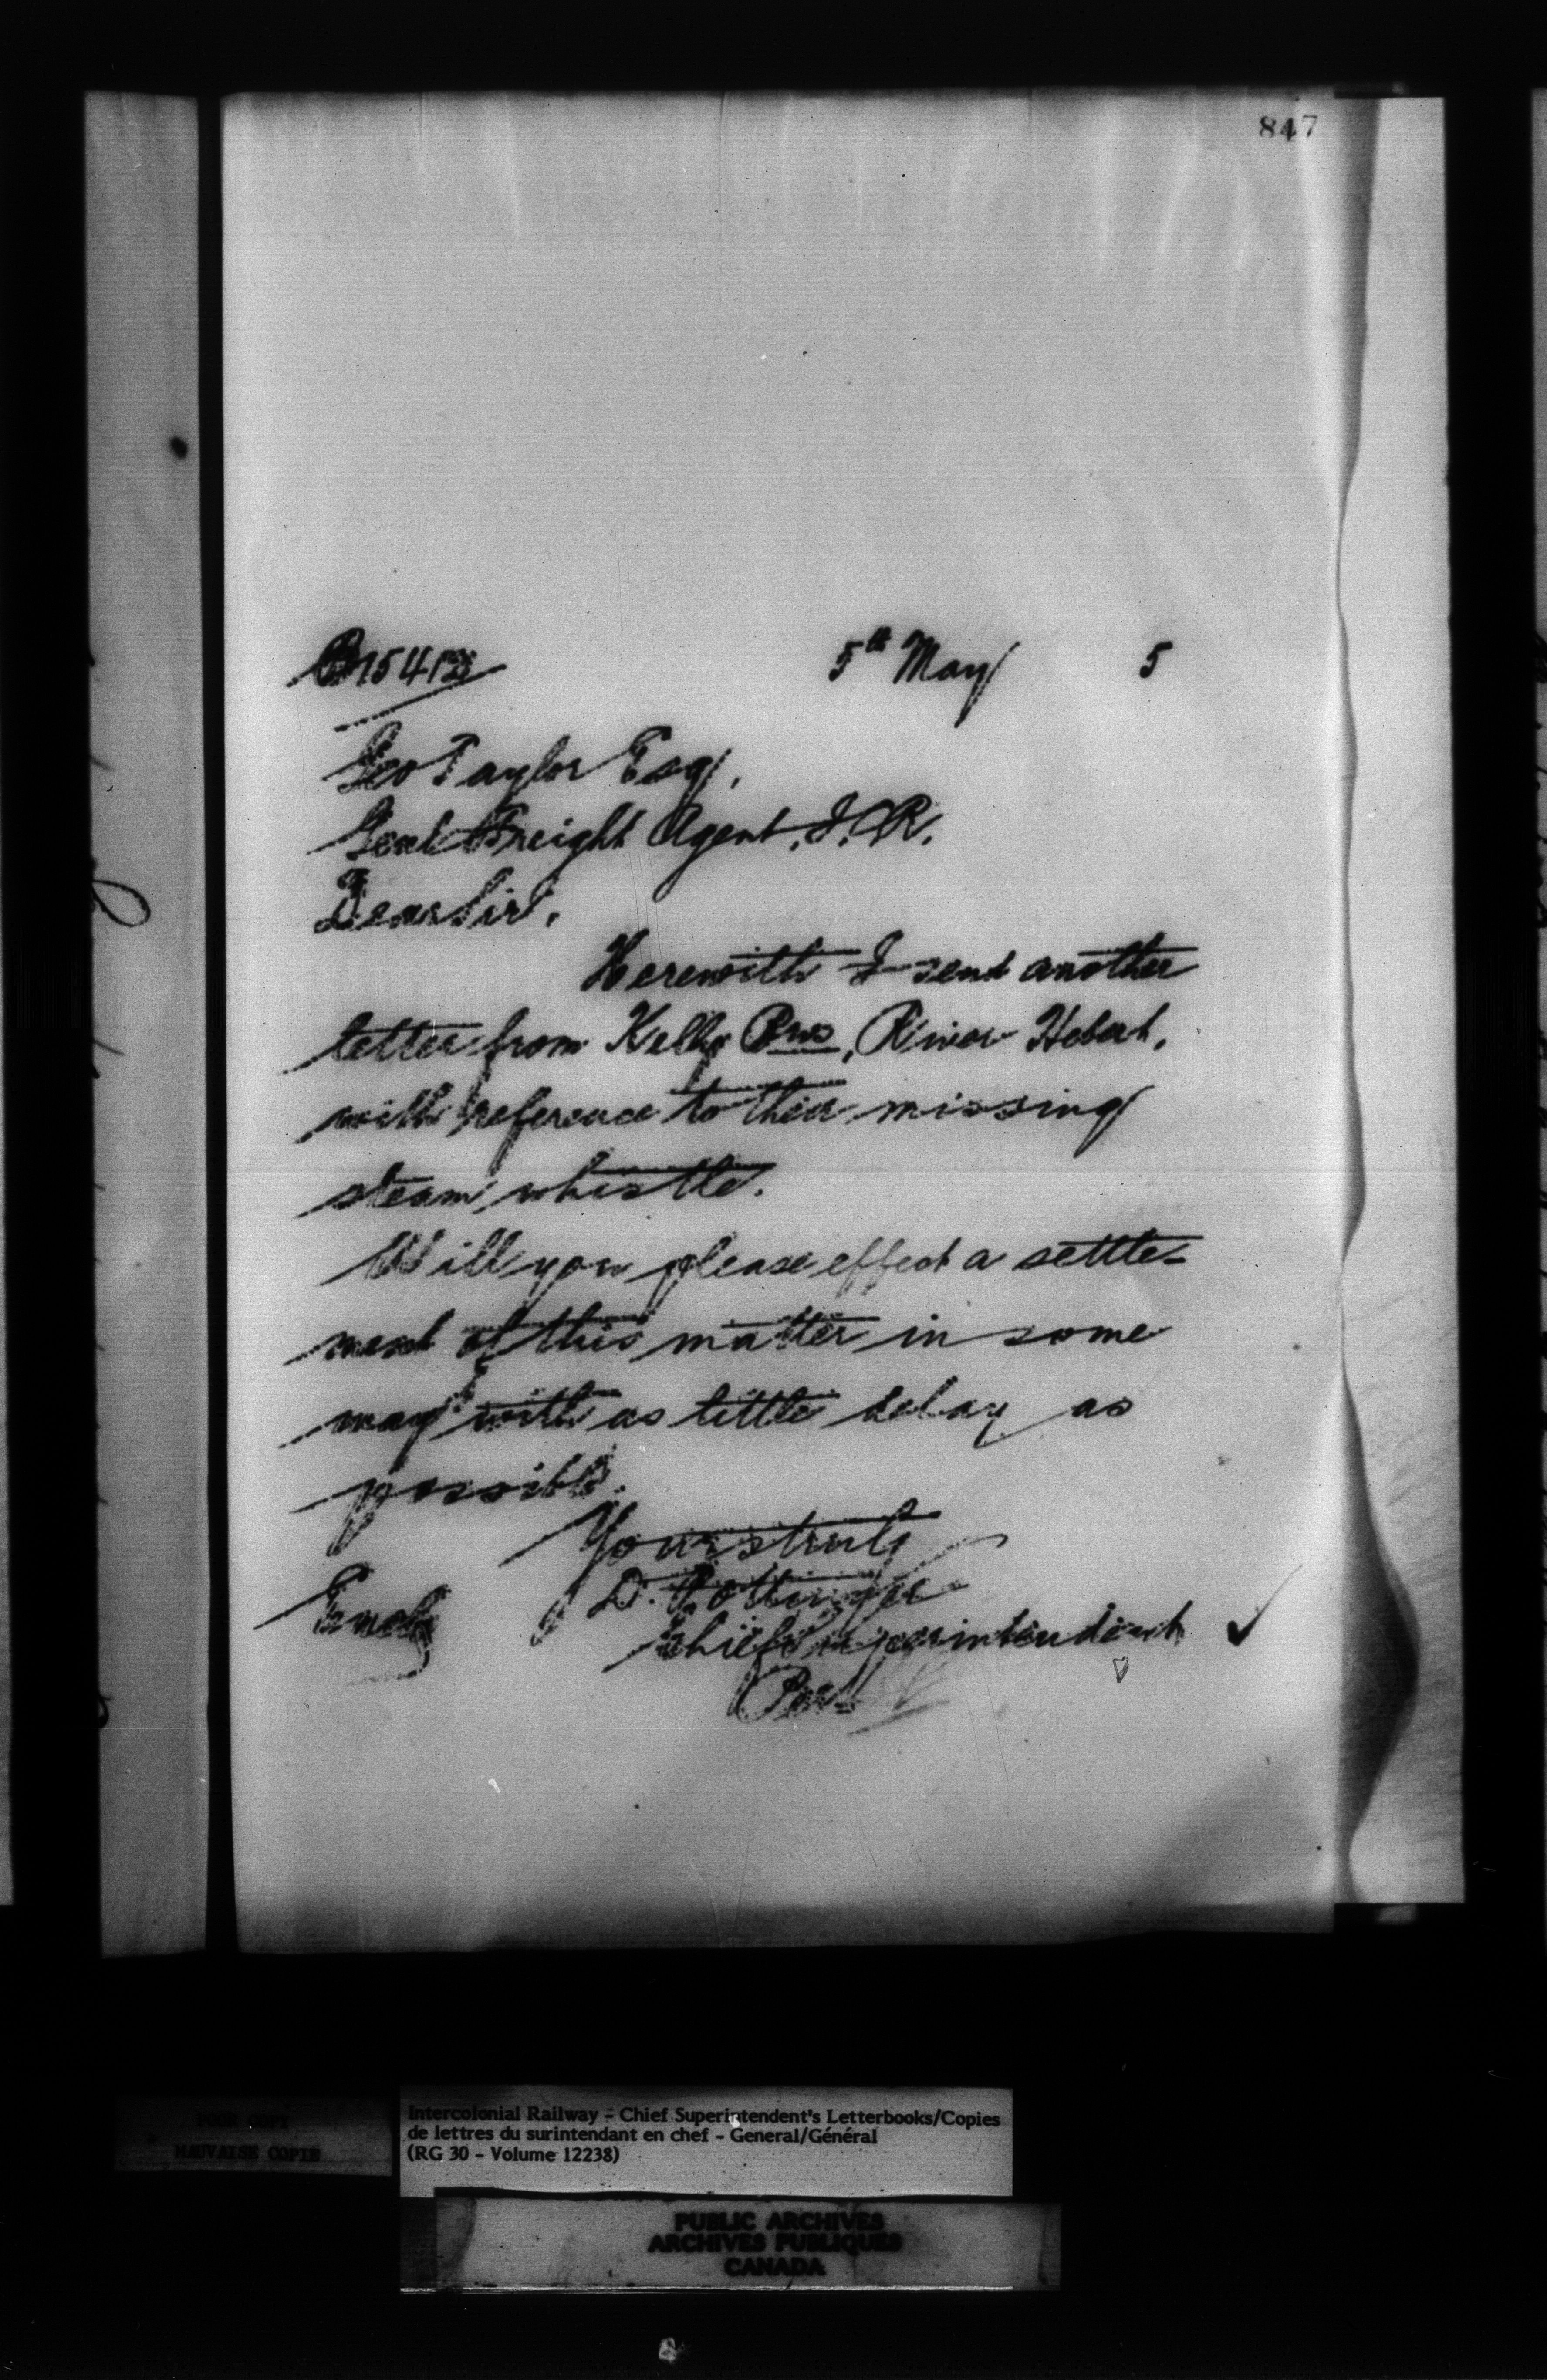 847
5th May 5
Geo Taylor Esq,
Genl Freight Agent, I. R.
Dear Sir,
Herewith I send another
letter from Kelly Bros, River Hebert,
with reference to their missing
steam whistle.
Will you please effect a settle-
ment of this matter in some
way with as little delay as
possible.
Yours truly
D. Pottinger
Chief Superintendent
POOR COPY
MAUVAISE COPIE
Intercolonial Railway - Chief Superintendent's Letterbooks/Copies
de lettres du surintendant en chef - General/Général
(RG 30 - Volume 12238)
PUBLIC ARCHIVES
ARCHIVES PUBLIQUES
CANADA